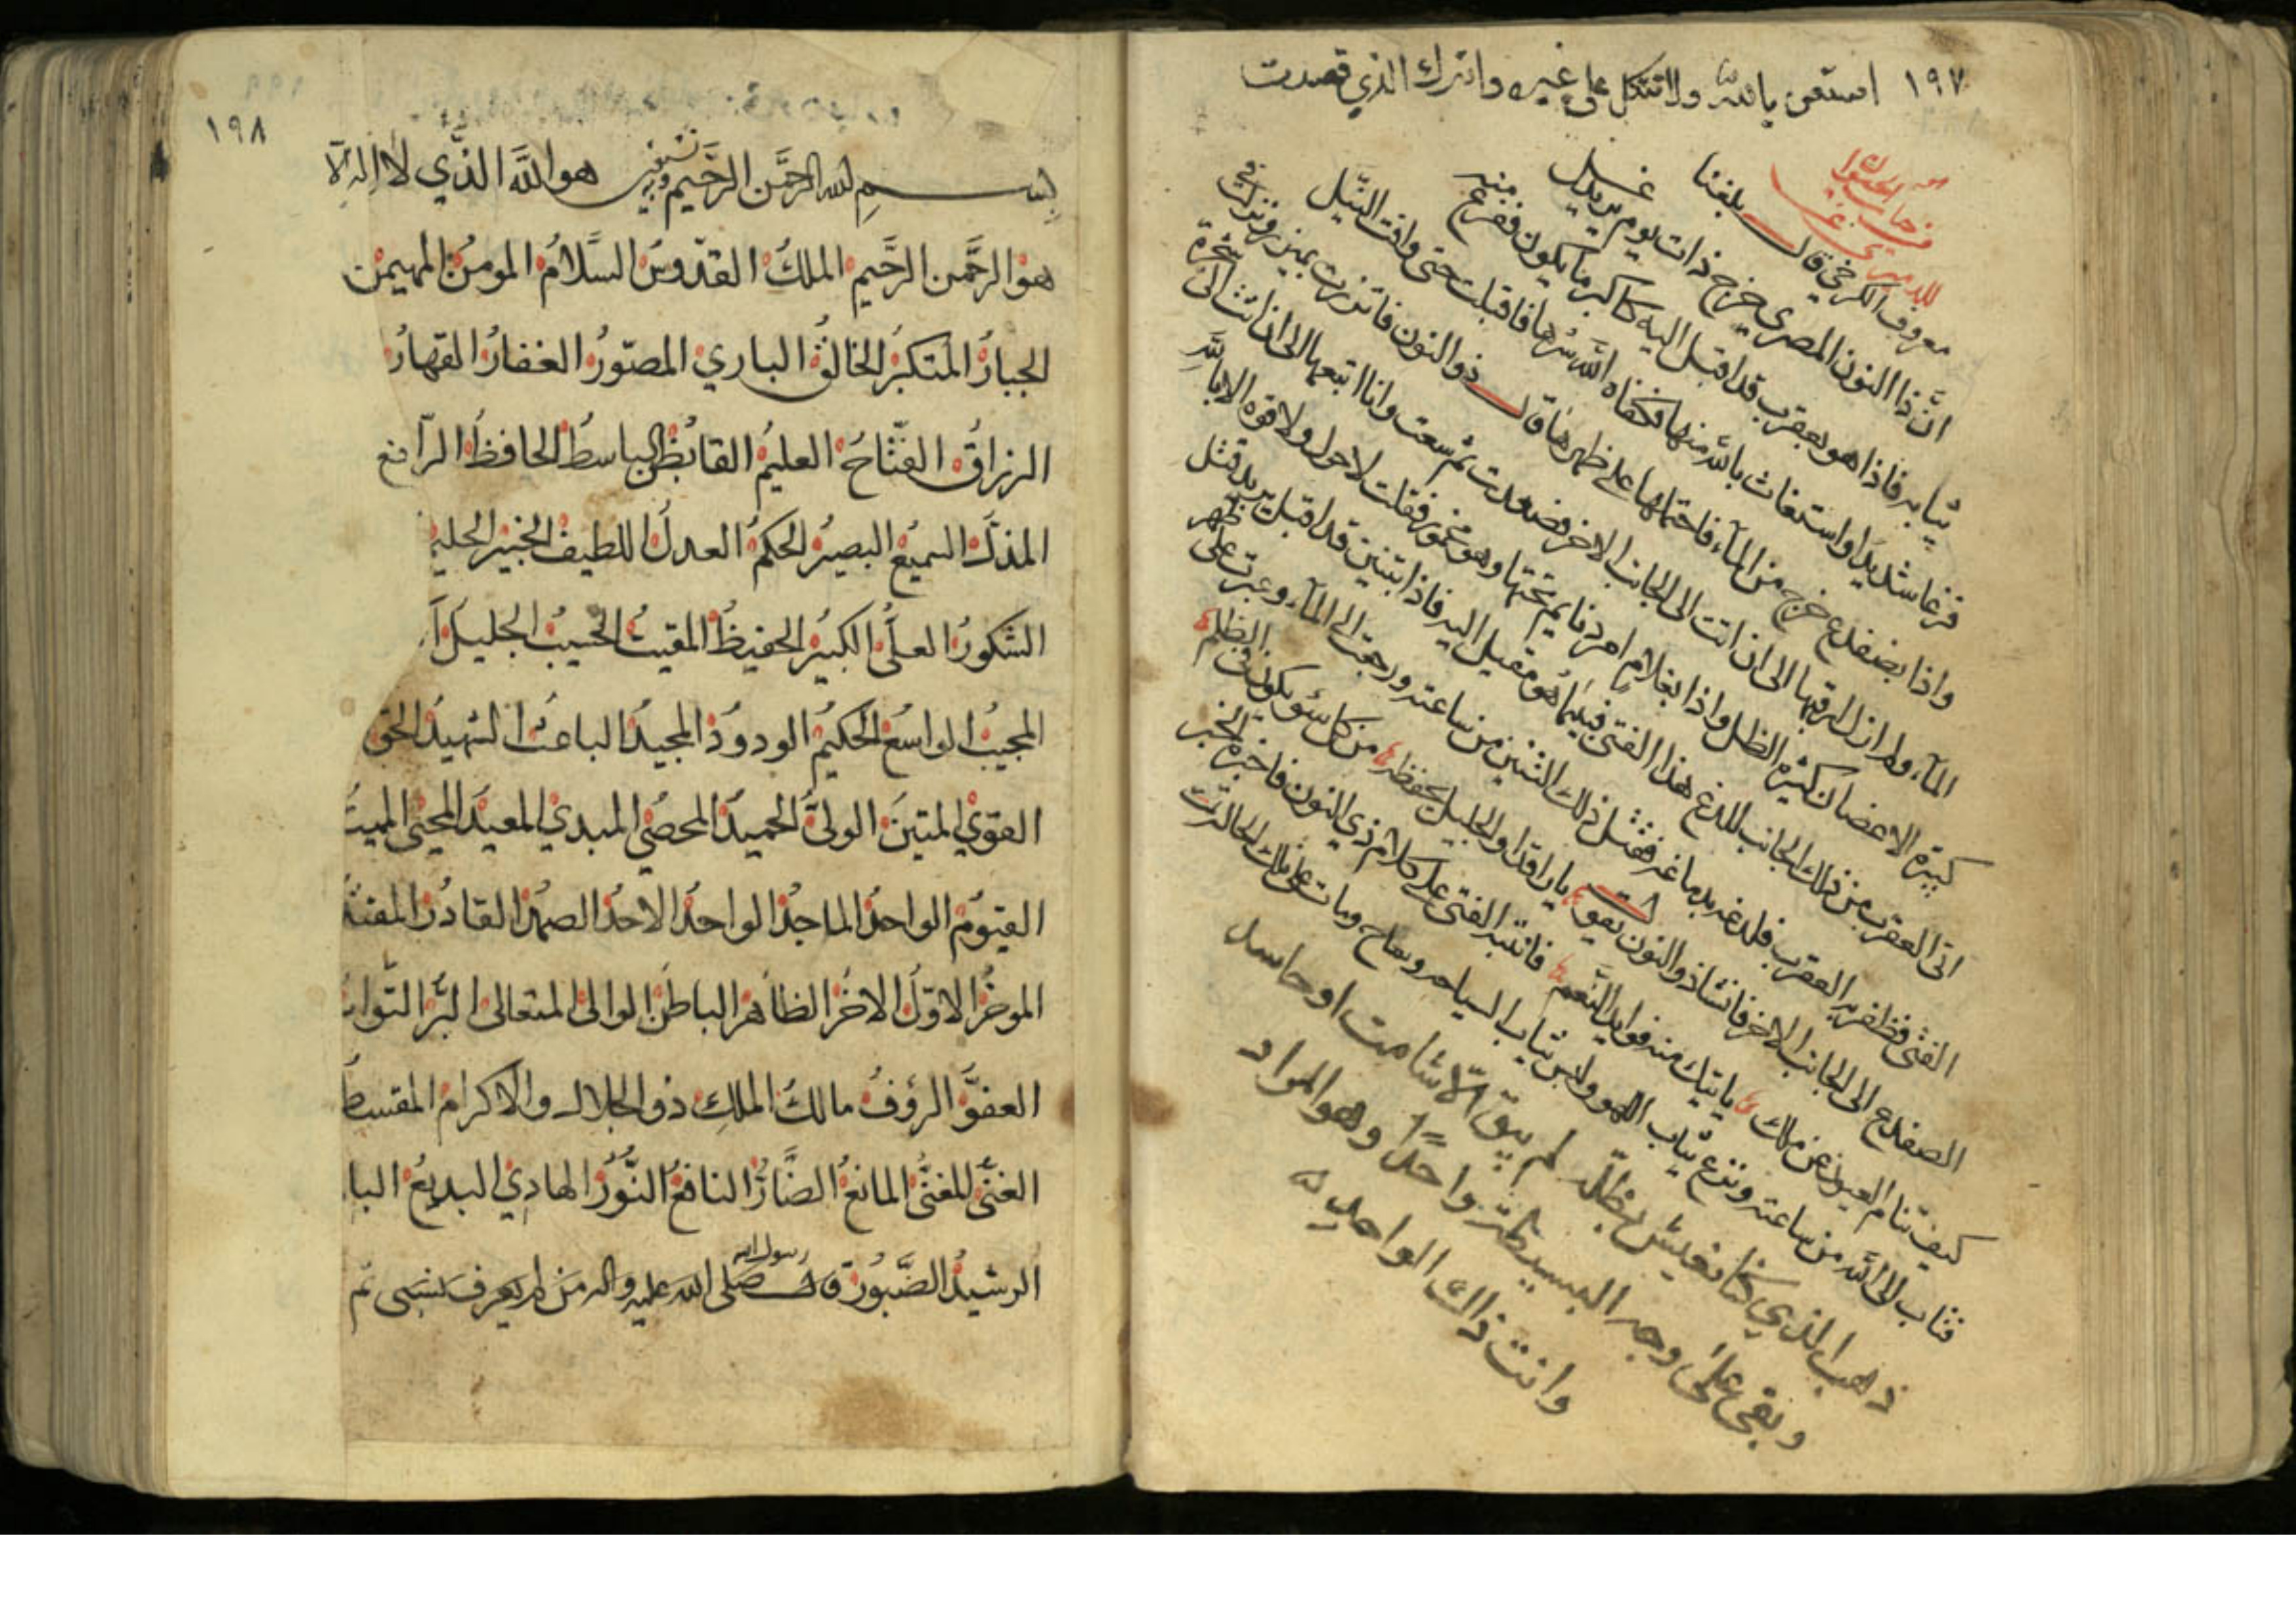 ١٩٧ استعن بالله ولا تتكل على غيره واترك الذي قصدت
من كتاب حياة الحيوان
للدميري عن
معروف الكرخي قال بلغنا
ان ذا النون المصري خرج ذات يوم يريد غسل
ثيابه فاذا هو بعقرب قد اقبل اليه كاكبر ما يكون ففزع منه
فزعا شديدا واستغاث بالله منها فكفاه الله شرها فاقبلت حتى وافت النيل
واذا بضفدع خرج من الماء فاحتملها على ظهرها قال ذو النون فاتزرت بميزر ونزلت في
الماء ولم ازل ارقبها الى ان اتت الى الجانب الاخر فصعدت ثم سعت وانا اتبعها الى ان اتت الى شجرة
كبيرة الاغصان كثيرة الظل واذا بغلام امرد نايم تحتها وهو مخمور فقلت لا حول ولا قوة الا بالله
اتى العقرب من ذلك الجانب للدغ هذا الفتى فبينما هو مقبل اليه فاذا بتنين قد اقبل يريد قتل
الفتى فظفر به العقرب فلدغ دماغه فقتل ذلك التنين من ساعته ورجعت الى الماء وعبرت على ظهر
الضفدع الى الجانب الاخر فانشا ذو النون يقول يا راقدا والجليل يحفظه من كل سؤ يكون في الظلم
كيف تنام العيون عن ملك ياتيك منه فوايد النعم فانتبه الفتى على كلام ذي النون فاخبره الخبر
فتاب الى الله من ساعته ونزع ثياب اللهو ولبس ثياب السياحه وساح ومات على تلك الحالة
ذهب الذي كنا نعيش بظله لم يبق الا شامت او حاسد
وبقى على وجه البسيطة واحد وهو المراد
وانت ذاك الواحد
١٩٨
بسم الله الرحمن الرحيم وبه نستعين هو الله الذي لا اله الا
هو الرحمن الرحيم الملك القدوس السلام المومن المهيمن
الجبار المتكبر الخالق الباري المصور الغفار القهار
الرزاق الفتاح العليم القابض الباسط الحافظ الرافع
المذل السميع البصير الحكم العدل اللطيف الخبير الحليم
الشكور العلي الكبير الحفيظ المقيت الحسيب الجليل
المجيب الواسع الحكيم الودود المجيد الباعث الشهيد الحق
القوي المتين الولي الحميد المحصي المبدي المعيد المحيي المميت
القيوم الواحد الماجد الواحد الاحد الصمد القادر المقتد
الموخر الاول الاخر الظاهر الباطن الوالي المتعالى البر التواب
العفو الرؤف مالك الملك ذو الجلال والاكرام المقسط
الغني المغني المانع الضار النافع النور الهادي البديع البا
الرشيد الصبور قال رسول الله صلى الله عليه واله من لم يعرف نسبى